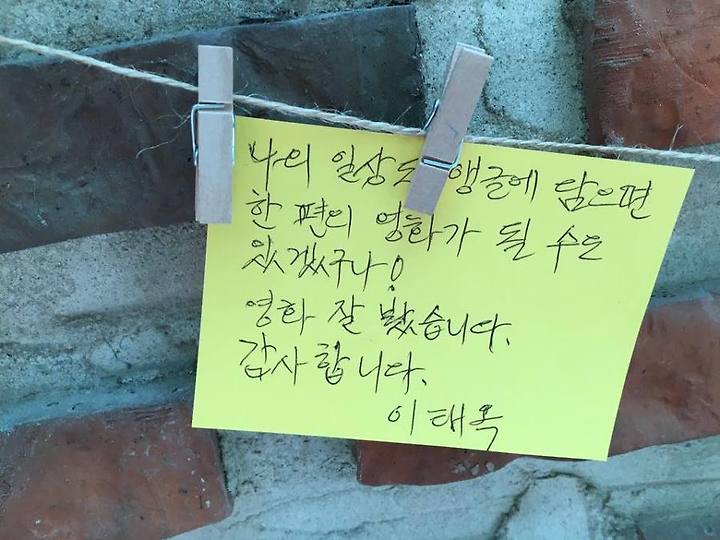 나의 일상도 앵글에 담으면
한 편의 영화가 될 수도
있겠구나!
영화 잘 봤습니다.
감사합니다.
이태옥